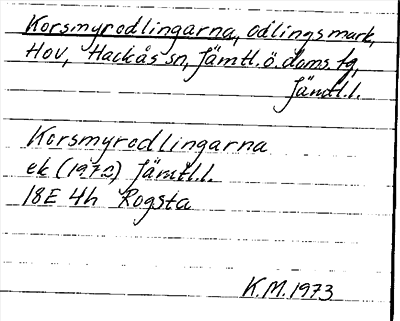 Korsmyrodlingarna, odlingsmark,
Hov, Hackås sn, Jämtl. ö. doms. tg,
Jämtl.l.
Korsmyrodlingarna
ek (1972) Jämtl.l.
18E 4h Rogsta
K.M.1973